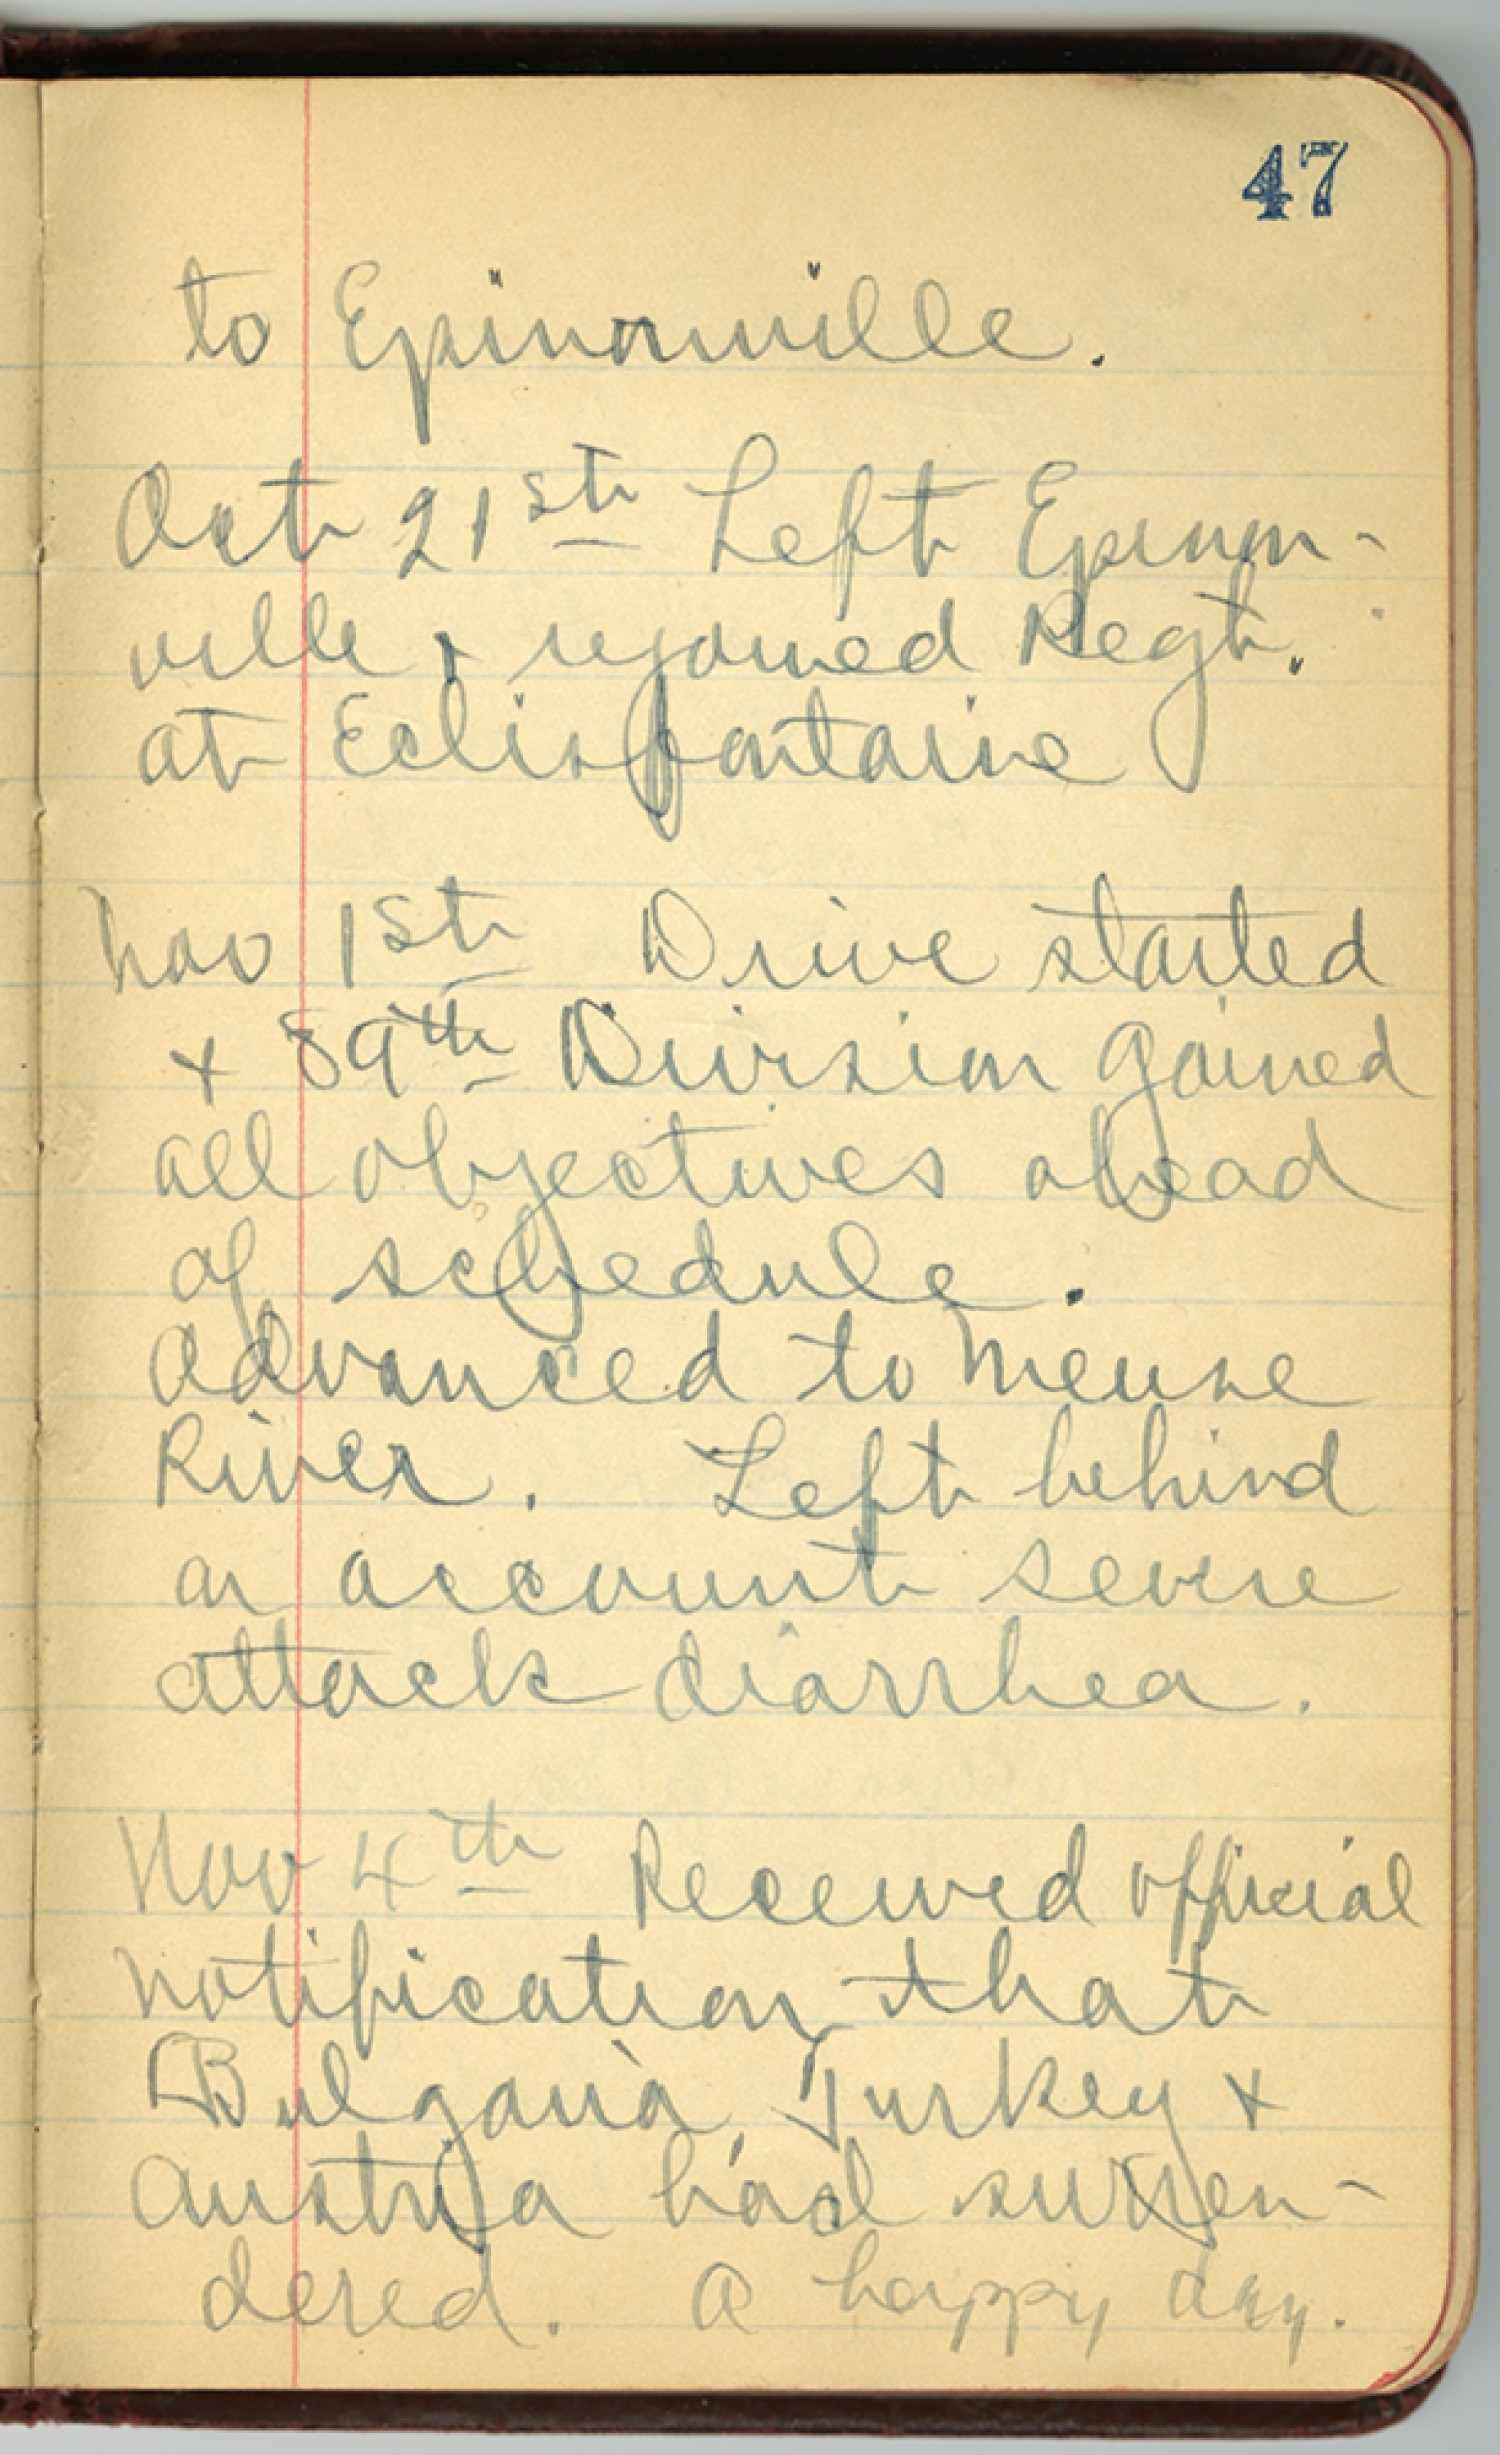 47
to Epinonville.
Oct 21st Left Epinon-
ville & rejoined Regt.
at Eclisfontaine
Nov 1st Drive started
+ 89th Division gained
all objectives ahead
of schedule.
Advanced to Meuse
River. Left behind
on account severe
attack diarrhea.
Nov 4th Received official
notification that
Bulgaria, Turkey +
Austria had surren-
dered. A happy day.